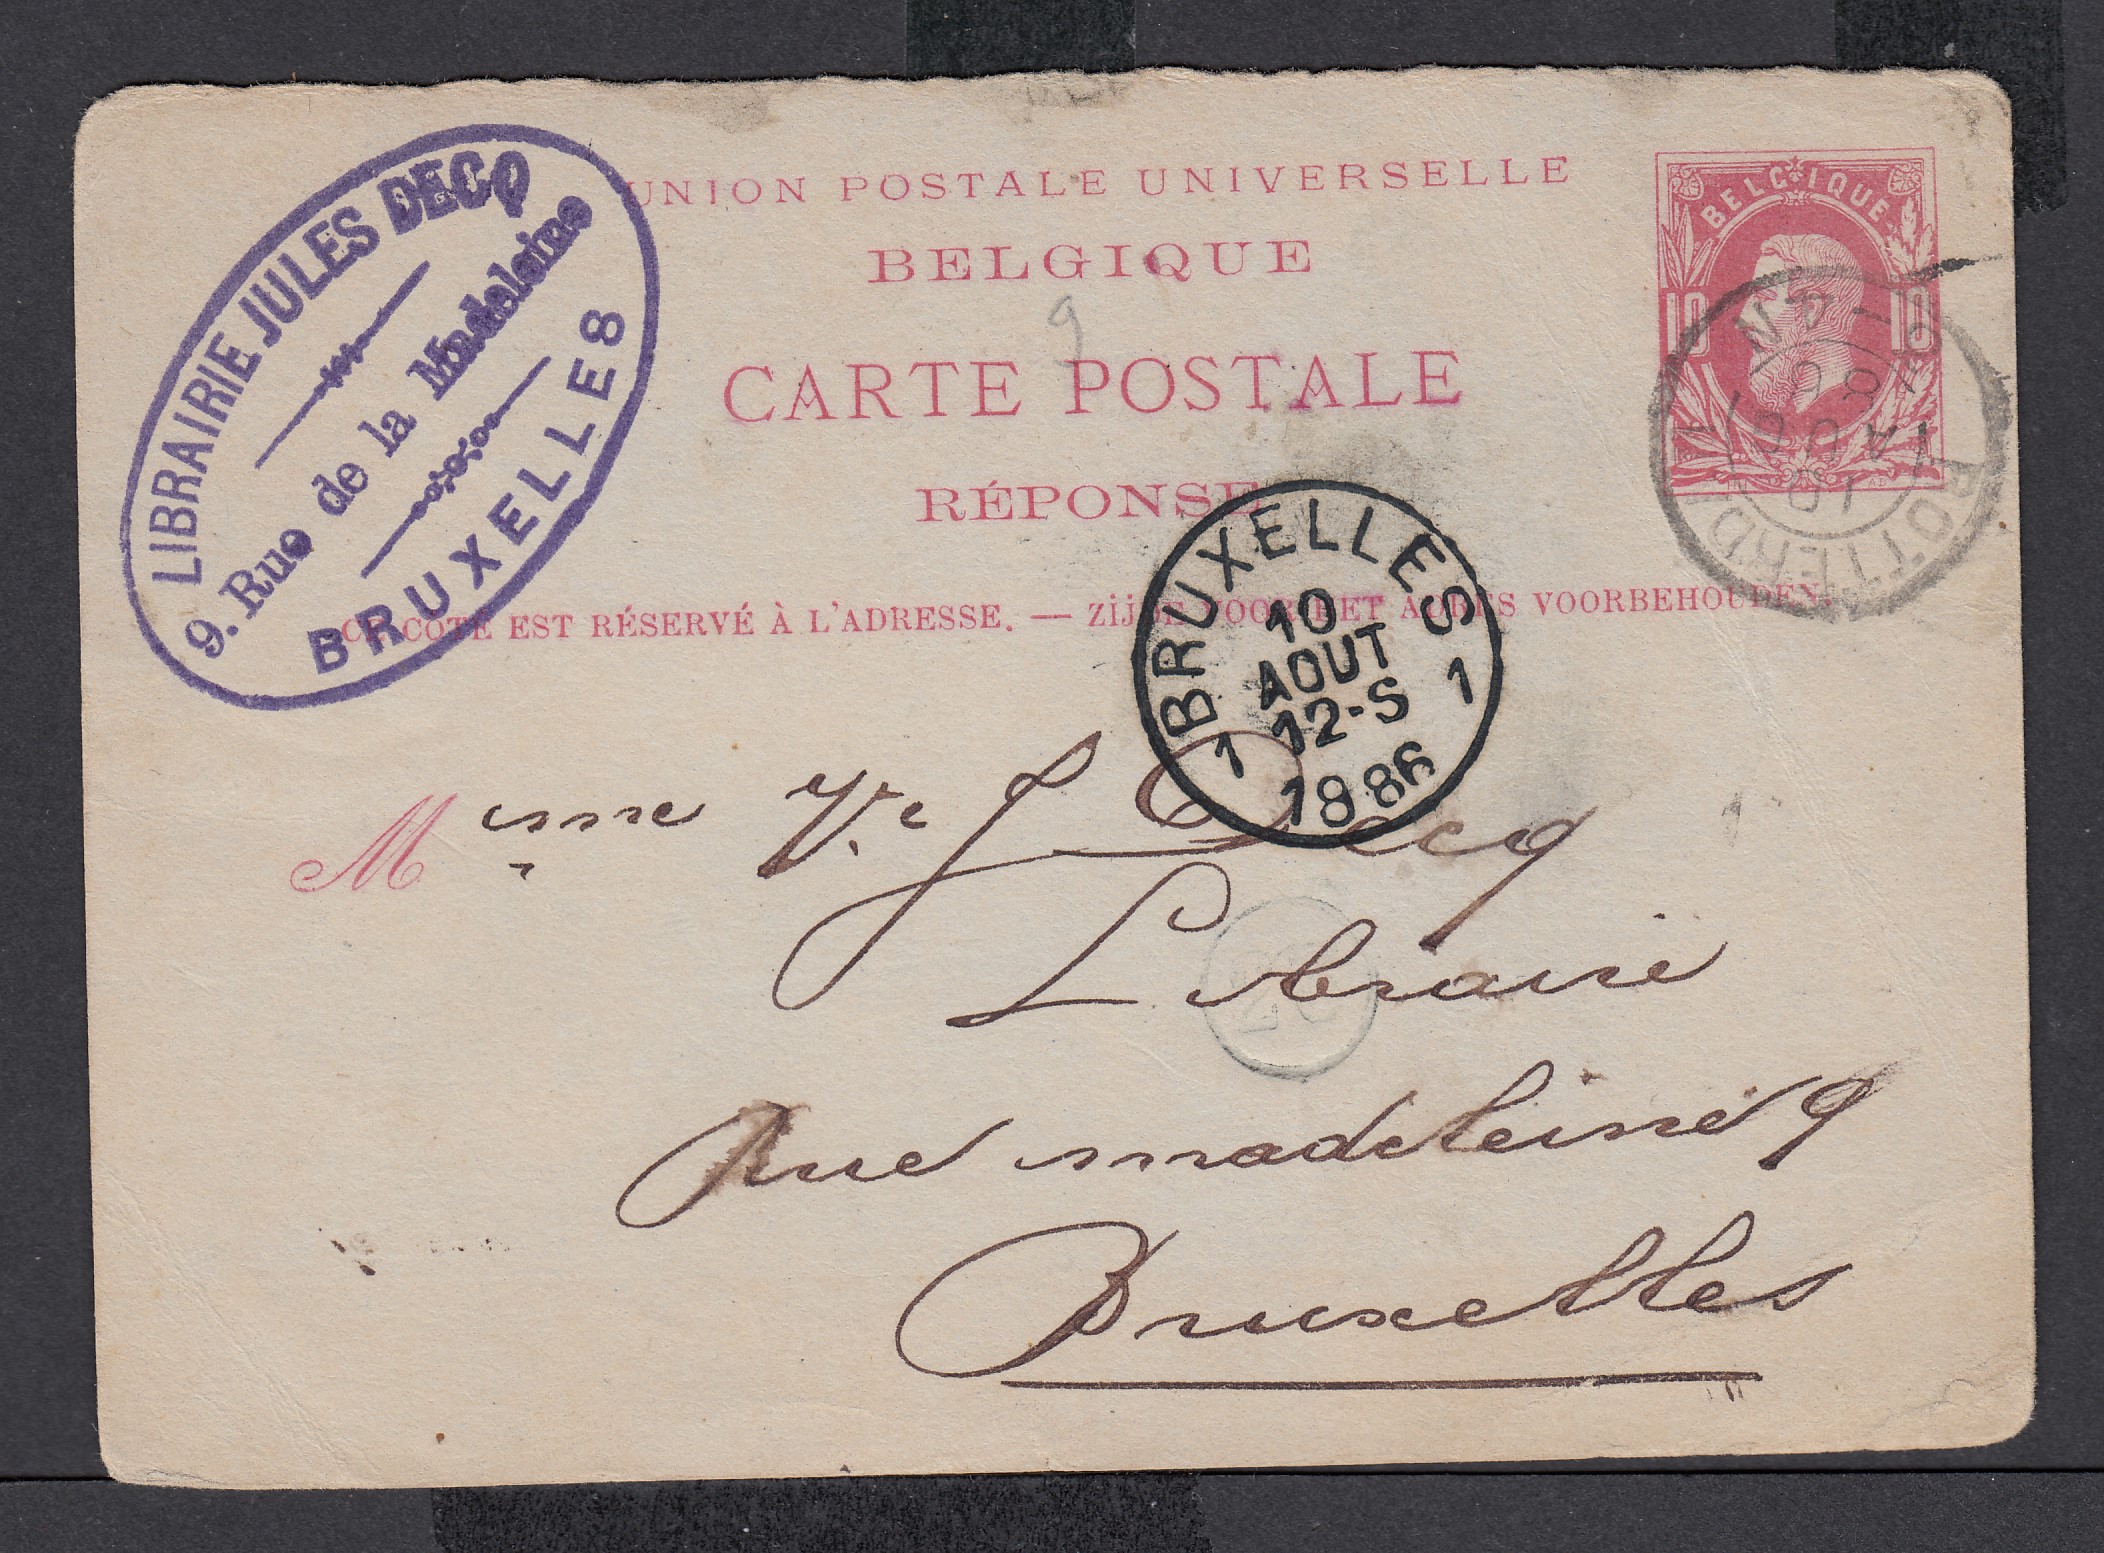 LIBRAIRIE JULES DECQ
9. Rue de la Madeleine
BRUXELLES
UNION POSTALE UNIVERSELLE
BELGIQUE
CARTE POSTALE
RÉPONSE
CE CÔTÉ EST RÉSERVÉ À L'ADRESSE. — ZIJDE VOOR HET ADRES VOORBEHOUDEN.
BELGIQUE
10 10
ROTTERD
10 AUG
86
BRUXELLES
10
AOUT
12-S
1 1
1886
9
Mme Ve J Decq
Librairie
Rue madeleine 9
Bruxelles